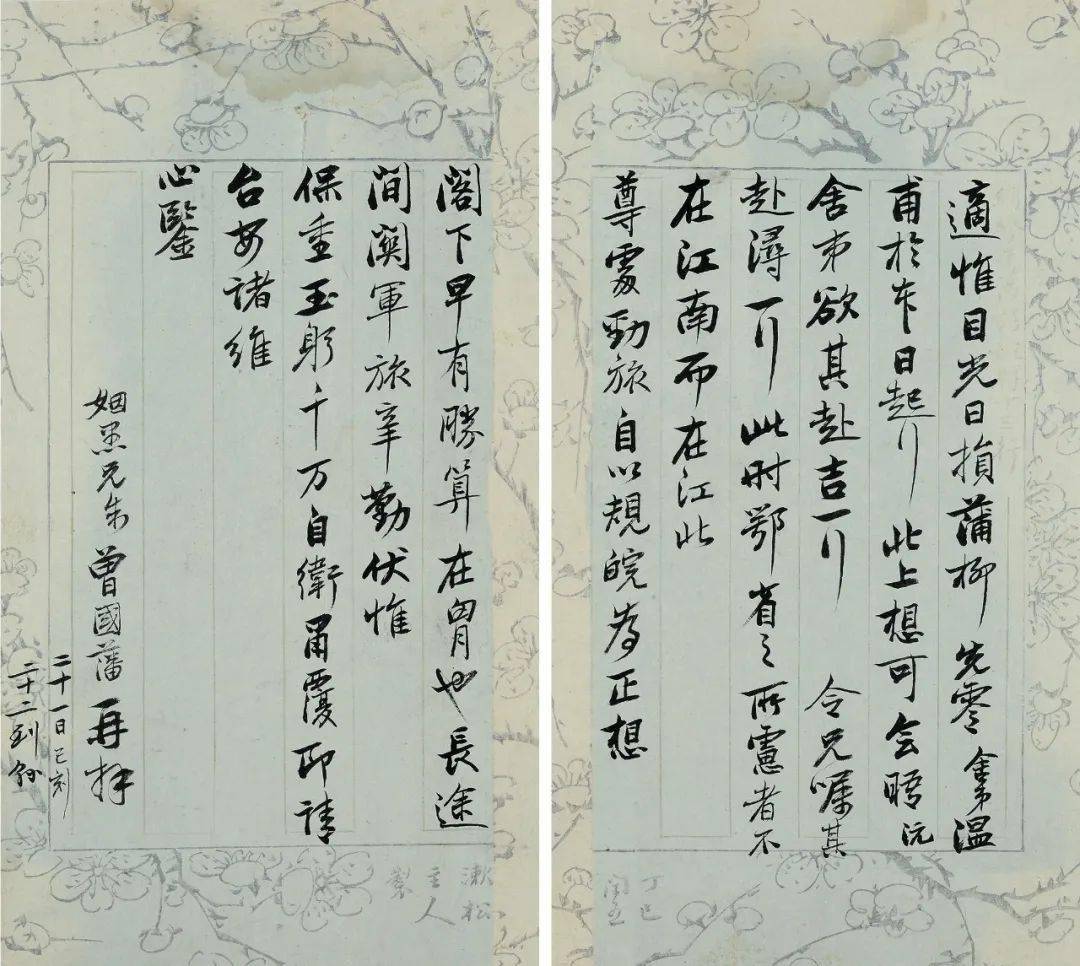 適惟目光日損蒲柳先零舍弟溫
甫於昨日起行此上想可会晤沅
舍弟欲其赴吉一行令兄囑其
赴潯一行此时鄂省之所慮者不
在江南而在江北
尊處勁旅自以規皖為正想
閣下早有勝算在胷也長途
間關軍旅辛勤伏惟
保重玉躬千万自衛肅覆即請
台安諸維
心鑒
姻愚兄弟曾國藩再拜
二十一日巳刻
二十二到
丁巳
漱松
主人
製